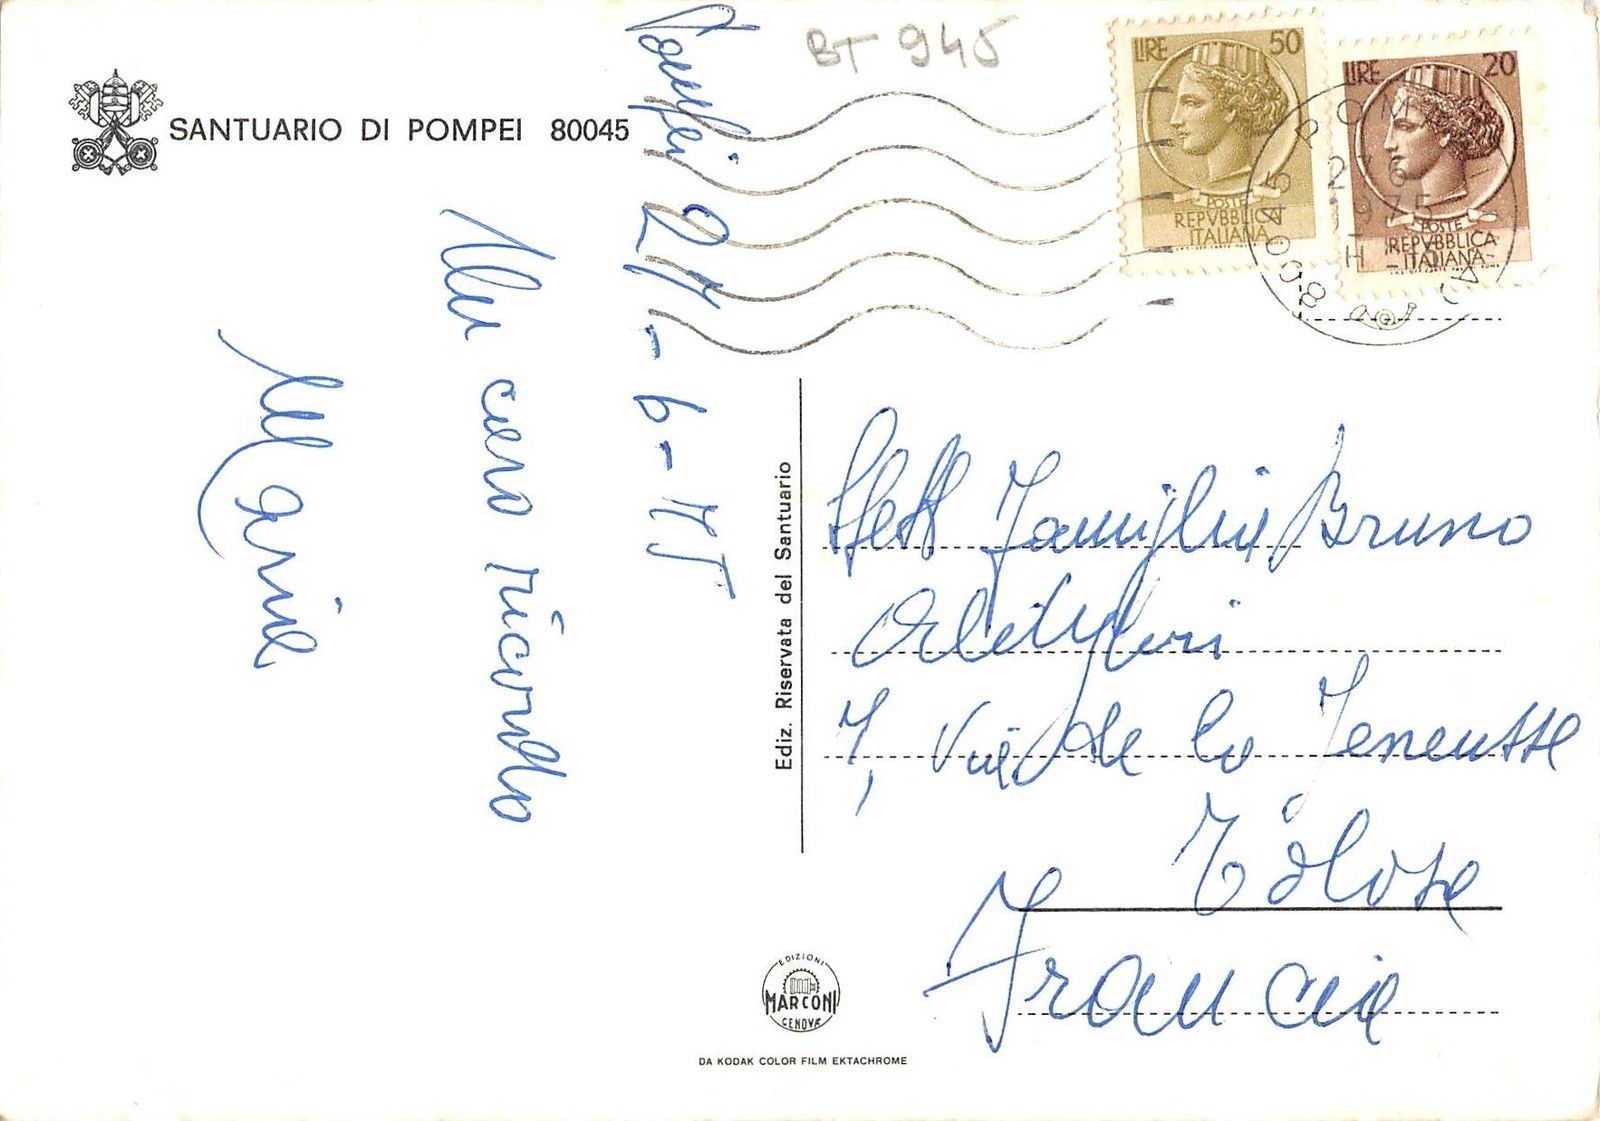 SANTUARIO DI POMPEI 80045
BT 945
Pompei 27-6-75
Un caro ricordo
Maria
LIRE 50
POSTE
REPVBBLICA
ITALIANA
LIRE 20
POSTE
REPVBBLICA
ITALIANA
80045 POMPEI
1975
Ediz. Riservata del Santuario
Famiglia Bruno
7, Rue de la
Francia
EDIZIONI
MARCONI
GENOVA
DA KODAK COLOR FILM EKTACHROME